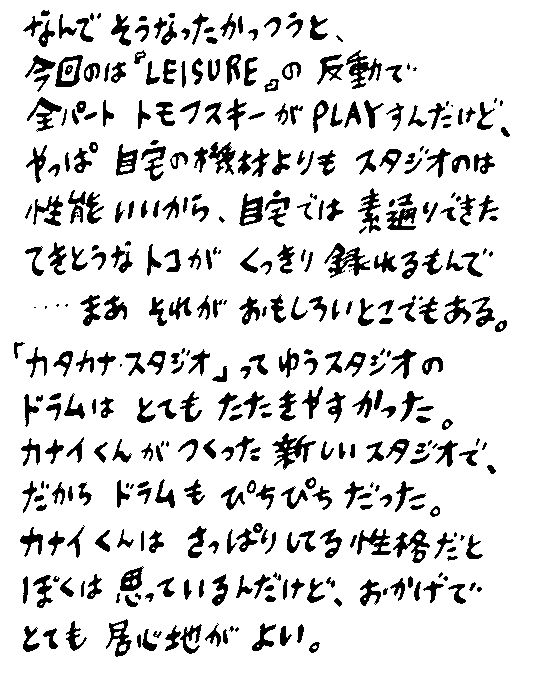 なんで そうなったかっつうと、
今回のは『LEISURE』の 反動で
全パート トモフスキーが PLAYすんだけど、
やっぱ 自宅の機材よりも スタジオのは
性能いいから、自宅では 素通りできた
てきとうなトコが くっきり 録れるもんで
‥‥まあ それが おもしろいとこでもある。
「カタカナ・スタジオ」ってゆうスタジオの
ドラムは とても たたきやすかった。
カナイくんが つくった 新しいスタジオで、
だから ドラムも ぴちぴちだった。
カナイくんは さっぱりしてる性格だと
ぼくは 思っているんだけど、おかげで
とても 居心地が よい。